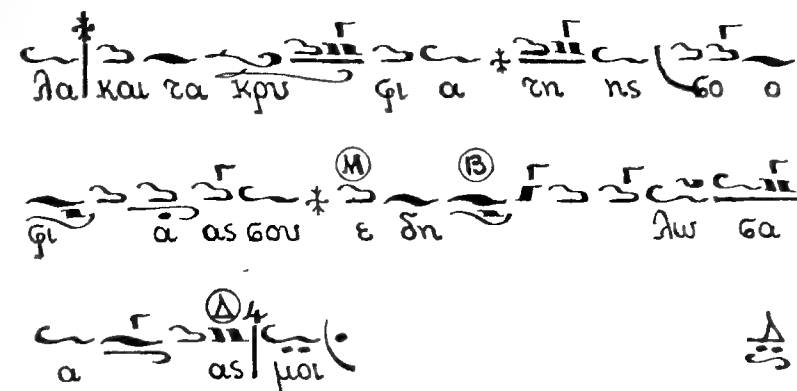 λα και τα κρυ φι α τη ης σο ο
φι α ας σου ε δη λω σα
α ας μοι